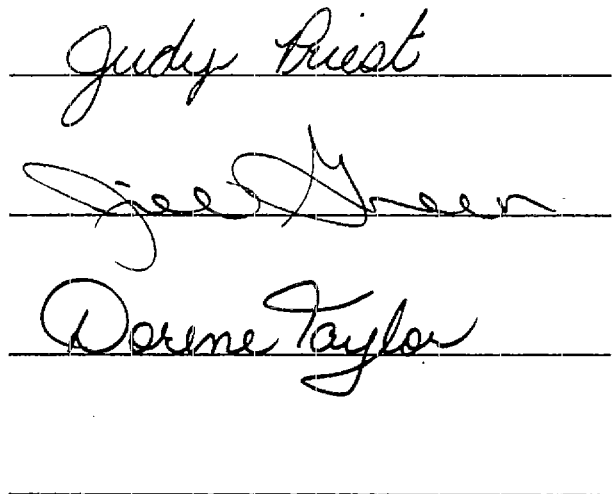 Judy Priest
Jill Green
Dorene Taylor